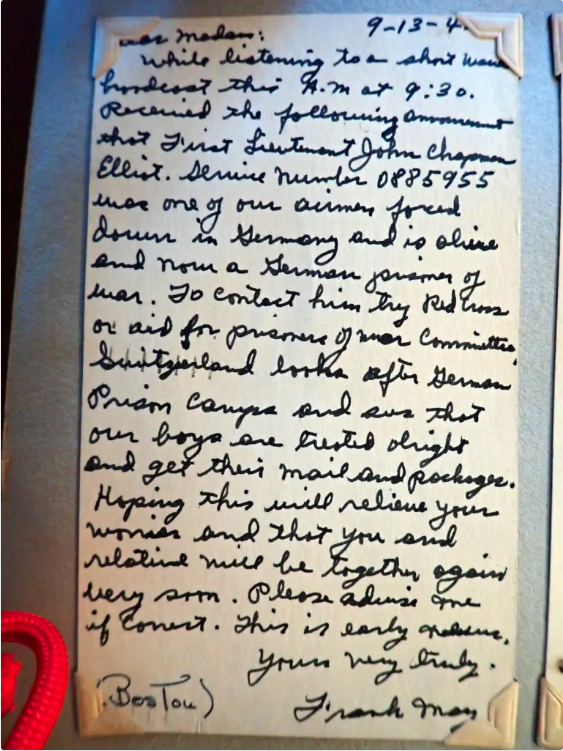 Dear Madam: 9-13-4
While listening to a short wave
brodcast this A.M at 9:30.
Received the following announcement
that First Lieutenant John Chapman
Elliot. Service number 0885955
was one of our airmen forced
down in Germany and is alive
and now a German prisoner of
war. To contact him try Red Cross
or aid for prisoners of war Committee
Switzerland looks after German
Prison Camps and sees that
our boys are treated alright
and get their mail and packages.
Hoping this will relieve your
worries and that you and
relative will be together again
very soon. Please advise me
if correct. This is early
Yours very truly.
(Boston) Frank May